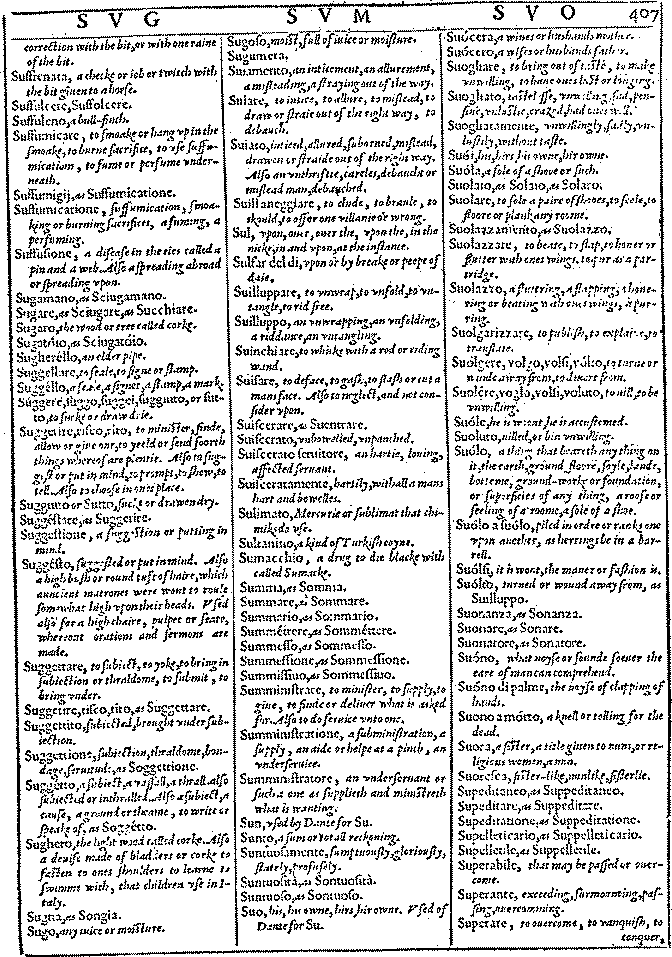 S V G
S V M
S V O
407
correction with the bit, or with one raine
of the bit.
Suffrenata, a checke or iob or twitch with
the bit giuen to a horse.
Suffulcere, Suffolcere.
Suffuleno, a bull-finch.
Suffumicare, to smoake or hang vp in the
smoake, to burne sacrifice, to vse suffu-
mication, to fume or perfume vnder-
neath.
Suffumigij, as Suffumicatione.
Suffumicatione, suffumication, smoa-
king or burning sacrifices, a fuming, a
perfuming.
Suffusione, a disease in the eies called a
pin and a web. Also a spreading abroad
or spreading vpon.
Sugamano, as Sciugamano.
Sugare, as Sciugare, as Succhiare.
Sugaro, the wood or tree called corke.
Sugatóio, as Sciugatóio.
Sugheréllo, an elder pipe.
Suggellare, to seale, to signe or stamp.
Suggéllo, a seale, a signet, a stamp, a mark.
Suggere, suggo, suggei, suggiuto, or sut-
to, to sucke or draw drie.
Suggerire, risco, rito, to minister, finde,
allow or giue our, to yeeld or send foorth
things whereof are plentie. Also to sug-
gest or put in mind, to prompt, to show, to
tell. Also to choose in ones place.
Suggiuto or Sutto, suckt or drawen dry.
Suggestare, as Suggerire.
Suggestione, a suggestion or putting in
mind.
Suggésto, suggested or put in mind. Also
a high bush or round tuft of haire, which
auncient matrones were wont to roule
somwhat high vpon their heads. Vsed
also for a high chaire, pulpet or seate,
whereout orations and sermons are
made.
Suggettare, to subiect, to yoke, to bring in
subiection or thraldome, to submit, to
bring vnder.
Suggettire, tisco, tito, as Suggettare.
Suggettito, subiected, brought vnder sub-
iection.
Suggettione, subiection, thraldome, bon-
dage, seruitude, as Soggettione.
Suggétto, a subiect, a vassall, a thrall. also
subiected or inthralled. Also a subiect, a
cause, a ground or theame, to write or
speake of, as Soggétto.
Sughero, the light wood called corke. Also
a deuise made of bladders or corke to
fasten to ones shoulders to learne to
swimme with, that children vse in I-
taly.
Sugna, as Songia.
Sugo, any iuice or moisture.
Sugoso, moist, full of iuice or moisture.
Sugumera.
Suiamento, an inticement, an allurement,
a misleading, a straying out of the way.
Suiare, to intice, to allure, to mislead, to
draw or straie out of the right way, to
debauch.
Suiato, inticed, allured, suborned, mislead,
drawen or straide out of the right way.
Also an vnthriftie, careles, debaucht or
mislead man, debauched.
Suillaneggiare, to chide, to braule, to
skould, to offer one villanie or wrong.
Sul, vpon, ouer, ouer the, vpon the, in the
nicke, in and vpon, at the instance.
Sulfar del di, vpon or by breake or peepe of
daie.
Suiluppare, to vnwrap, to vnfold, to vn-
tangle, to rid free.
Suiluppo, an vnwrapping, an vnfolding,
a riddance, an vntangling.
Suinchiare, to whiske with a rod or riding
wand.
Suisare, to deface, to gash, to slash or cut a
mans face. Also to neglect, and not con-
sider vpon.
Suiscerare, as Suentrare.
Suiscerato, vnbowelled, vnpanched.
Suiscerato seruitore, an hartie, louing,
affected seruant.
Suisceratamente, hartily, with all a mans
hart and bowelles.
Sulimato, Mercurie or sublimat that chi-
mikes do vse.
Sultanino, a kind of Turkish coyne.
Sumacchio, a drug to die blacke with
called Sumacke.
Summa, as Somma.
Summare, as Sommare.
Summario, as Sommario.
Summéttere, as Somméttere.
Summesso, as Sommesso.
Summessione, as Sommessione.
Summissiuo, as Sommessiuo.
Sumministrare, to minister, to supply, to
giue, to finde or deliuer what is asked
for. Also to do seruice vnto one.
Sumministratione, a subministration, a
supply, an aide or helpe at a pinch, an
vnderseruice.
Sumministratore, an vnderseruant or
such a one as supplieth and ministreth
what is wanting.
Sun, vsed by Dante for Su.
Sunto, a sum or totall reckoning.
Suntuosamente, sumptuously, gloriously,
stately, profusely.
Suntuosità, as Sontuosità.
Suntuoso, as Sontuoso.
Suo, his, his owne, hirs, hir owne. Vsed of
Dante for Su.
Suócera, a wiues or husbands mother.
Suócero, a wifes or husbands father.
Suogliare, to bring out of taste, to make
vnwilling, to haue ones lust or longing.
Suogliato, tastelesse, vnwilling, sad, pen-
siue, vnlustie, crazed,
Suogliatamente, vnwillingly, sadly, vn-
lustily, without taste.
Suói, his, hirs his owne, hir owne.
Suóla, a sole of a shooe or such.
Suolaio, as Solaio, as Solaro.
Suolare, to sole a paire of shooes, to scole, to
floore or planke any roome.
Suolazzamento, as Suolazzo.
Suolazzare, to beate, to flap, to houer or
flutter with ones wings, to qur as a par-
tridge.
Suolazzo, a fluttring, a flapping, a houe-
ring or beating with ones wings, a qur-
ring.
Suolgarizzare, to publish, to explaine, to
translate.
Suólgere, volgo, volsi, vólto, to turne or
winde away from, to diuert from.
Suolére, voglio, volsi, voluto, to nill, to be
vnwilling.
Suóle, he is wont, he is accustomed.
Suoluto, nilled, or bin vnwilling.
Suólo, a thing that beareth any thing on
it, the earth, ground, floore, soyle, lande,
bottome, ground-worke or foundation,
or superficies of any thing, a roofe or
seeling of a roome, a sole of a shoe.
Suólo a suólo, piled in ordre or rancks one
vpon another, as herrings be in a bar-
rell.
Suólsi, it is wont, the maner or fashion is.
Suólto, turned or wound away from, as
Suiluppo.
Suonanza, as Sonanza.
Suonare, as Sonare.
Suonatore, as Sonatore.
Suóno, what noyse or sounde soeuer the
eare of man can comprehend.
Suóno di palme, the noyse of clapping of
hands.
Suono a mórto, a knell or tolling for the
dead.
Suora, a sister, a title giuen to nuns, or re-
ligious women, a nun.
Suoresca, sister-like, nunlike, sisterlie.
Supeditaneo, as Suppeditaneo.
Supeditare, as Suppeditare.
Supeditatione, as Suppeditatione.
Supelleticario, as Suppelleticario.
Supelletile, as Suppelletile.
Superabile, that may be passed or ouer-
come.
Superante, exceeding, surmounting, pas-
sing, ouercomming.
Superare, to ouercome, to vanquish, to
conquer,